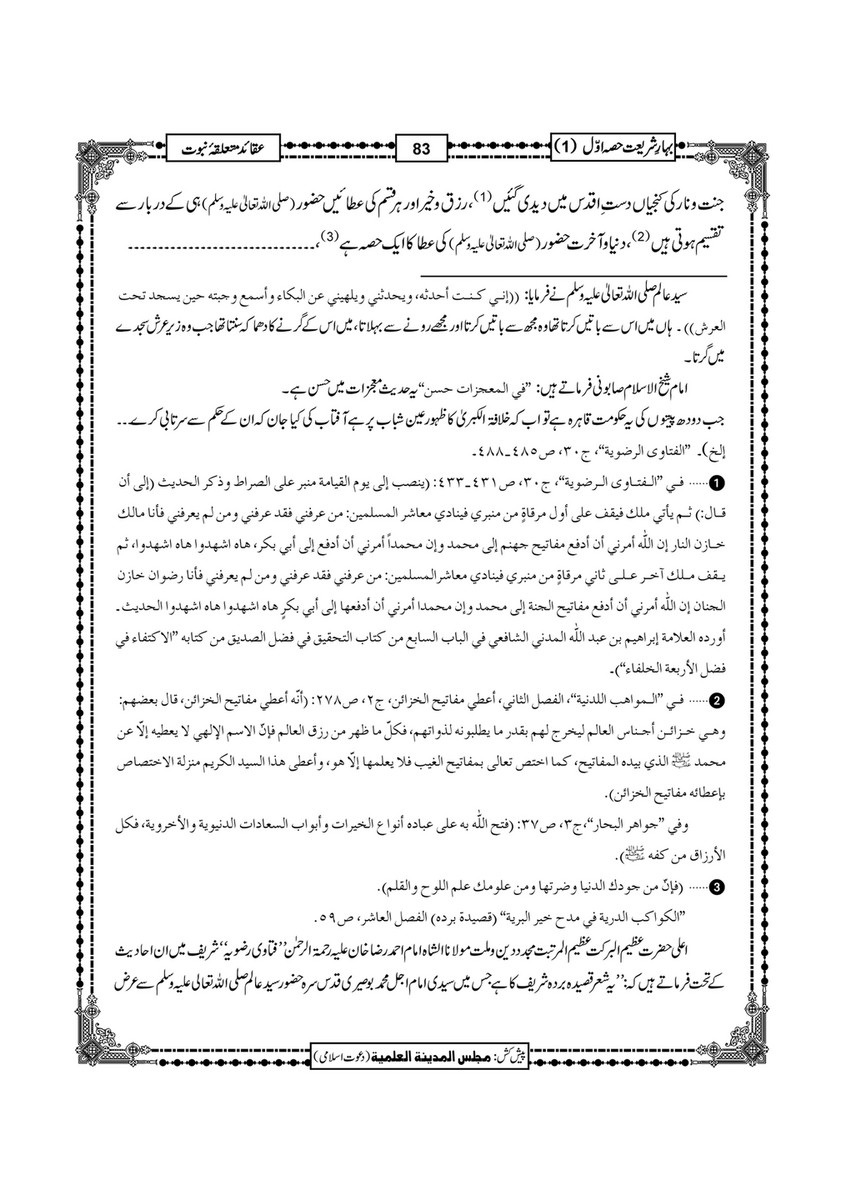 بہارِشریعت حصہ اوّل (1)
83
عقائد متعلقۂ نبوت
جنت و نار کی کنجیاں دستِ اقدس میں دیدی گئیں(1)، رزق و خیر اور ہر قسم کی عطائیں حضور (صلی اللہ تعالیٰ علیہ وسلم) ہی کے دربار سے
تقسیم ہوتی ہیں(2)، دنیا و آخرت حضور (صلی اللہ تعالیٰ علیہ وسلم) کی عطا کا ایک حصہ ہے(3)،-------------------------------
سید عالم صلی اللہ تعالیٰ علیہ وسلم نے فرمایا: ((إني كنت أحدثه، ويحدثني ويلهيني عن البكاء وأسمع وجبته حين يسجد تحت
العرش))۔ ہاں میں اس سے باتیں کرتا تھا وہ مجھ سے باتیں کرتا اور مجھے رونے سے بہلاتا، میں اس کے گرنے کا دھماکہ سنتا تھا جب وہ زیر عرش سجدے
میں گرتا۔
امام شیخ الاسلام صابونی فرماتے ہیں: ”في المعجزات حسن“ یہ حدیث معجزات میں حسن ہے۔
جب دودھ پیتوں کی یہ حکومت قاہرہ ہے تو اب کہ خلافۃ الکبریٰ کا ظہور عین شباب پر ہے آفتاب کی کیا جان کہ ان کے حکم سے سرتابی کرے...
إلخ)۔ ”الفتاوى الرضوية“، ج٣٠، ص٤٨٥-٤٨٨۔
❶...... في ”الفتاوى الرضوية“، ج٣٠، ص٤٣١-٤٣٣: (ينصب إلى يوم القيامة منبر على الصراط وذكر الحديث (إلى أن
قال:) ثم يأتي ملك فيقف على أول مرقاةٍ من منبري فينادي معاشر المسلمين: من عرفني فقد عرفني ومن لم يعرفني فأنا مالك
خازن النار إن الله أمرني أن أدفع مفاتيح جهنم إلى محمد وإن محمداً أمرني أن أدفع إلى أبي بكر، هاه اشهدوا هاه اشهدوا، ثم
يقف ملك آخر على ثاني مرقاةٍ من منبري فينادي معاشر المسلمين: من عرفني فقد عرفني ومن لم يعرفني فأنا رضوان خازن
الجنان إن الله أمرني أن أدفع مفاتيح الجنة إلى محمد وإن محمدا أمرني أن أدفعها إلى أبي بكرٍ هاه اشهدوا هاه اشهدوا الحديث۔
أورده العلامة إبراهيم بن عبد الله المدني الشافعي في الباب السابع من كتاب التحقيق في فضل الصديق من كتابه ”الاكتفاء في
فضل الأربعة الخلفاء“)۔
❷...... في ”المواهب اللدنية“، الفصل الثاني، أعطي مفاتيح الخزائن، ج٢، ص٢٧٨: (أنّه أعطي مفاتيح الخزائن، قال بعضهم:
وهي خزائن أجناس العالم ليخرج لهم بقدر ما يطلبونه لذواتهم، فكلّ ما ظهر من رزق العالم فإنّ الاسم الإلهي لا يعطيه إلّا عن
محمد ﷺ الذي بيده المفاتيح، كما اختص تعالى بمفاتيح الغيب فلا يعلمها إلّا هو، وأعطي هذا السيد الكريم منزلة الاختصاص
بإعطائه مفاتيح الخزائن).
وفي ”جواهر البحار“،ج٣، ص٣٧: (فتح الله به على عباده أنواع الخيرات وأبواب السعادات الدنيوية والأخروية، فكل
الأرزاق من كفه ﷺ).
❸...... (فإنّ من جودك الدنيا وضرتها ومن علومك علم اللوح والقلم).
”الكواكب الدرية في مدح خير البرية“ (قصيدة برده) الفصل العاشر، ص٥٩.
اعلیٰ حضرت عظیم البرکت عظیم المرتبت مجدد دین و ملت مولانا الشاہ امام احمد رضا خان علیہ رحمۃ الرحمٰن ”فتاوی رضویہ“ شریف میں ان احادیث
کے تحت فرماتے ہیں کہ: ”یہ شعر قصیدہ بردہ شریف کا ہے جس میں سیدی امام اجل محمد بوصیری قدس سرہ حضور سید عالم صلی اللہ تعالیٰ علیہ وسلم سے عرض
پیش کش: مجلس المدينة العلمية (دعوت اسلامی)